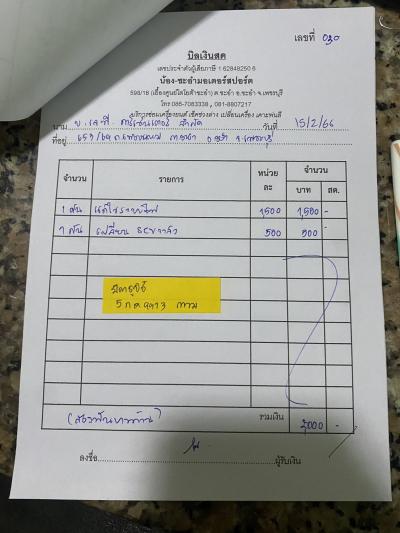 เลขที่ 030
บิลเงินสด
เลขประจำตัวผู้เสียภาษี 1 62848250 6
น้อง-ชะอำมอเตอร์สปอร์ต
598/18 (เยื้องศูนย์โตโยต้าชะอำ) ต.ชะอำ อ.ชะอำ จ.เพชรบุรี
โทร 086-7083338 , 081-8807217
บริการซ่อมเครื่องยนต์ เช็คช่วงล่าง เปลี่ยนเครื่อง เคาะพ่นสี
นาม วันที่ 15/2/66
ที่อยู่ 659/69
จำนวน รายการ หน่วยละ จำนวน
บาท สต.
1 คัน แก้ไขระบบไฟ 1,500 1,500 -
1 คัน เปลี่ยน 500 500 -
มิตซูบิชิ
5 กด 9973 กทม
(สองพันบาทถ้วน) รวมเงิน 2,000 -
ลงชื่อ ผู้รับเงิน